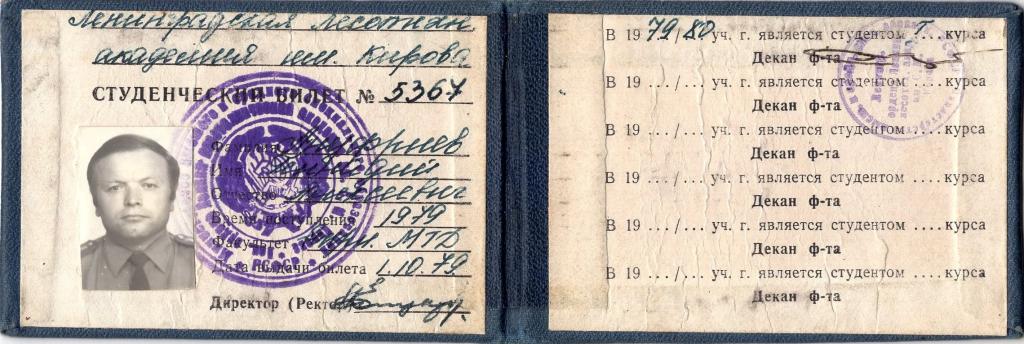 Ленинградская лесотехн.
академия им. Кирова
СТУДЕНЧЕСКИЙ БИЛЕТ № 5367
Фамилия
Имя
Отчество Алексеевич
Время поступления 1979
Факультет МТД
Дата выдачи билета 1.10.79
Директор (Ректор)
В 19 79/80 уч. г. является студентом I... курса
Декан ф-та
В 19 .../... уч. г. является студентом .... курса
Декан ф-та
В 19 .../... уч. г. является студентом .... курса
Декан ф-та
В 19 .../... уч. г. является студентом .... курса
Декан ф-та
В 19 .../... уч. г. является студентом .... курса
Декан ф-та
В 19 .../... уч. г. является студентом .... курса
Декан ф-та